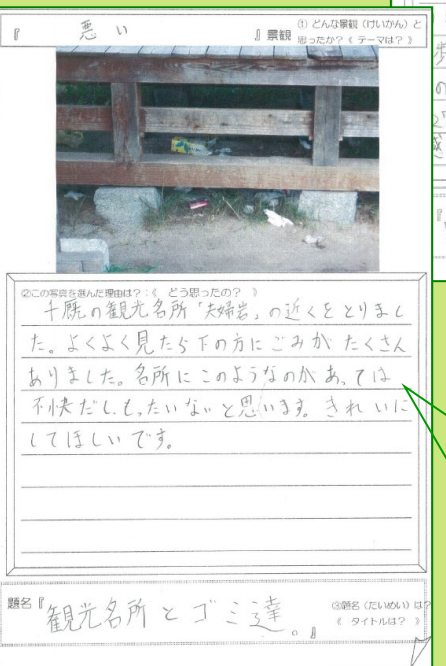 『 悪い 』景観
① どんな景観（けいかん）と
思ったか？《 テーマは？ 》
②この写真を選んだ理由は？：《 どう思ったの？ 》
千厩の観光名所「夫婦岩」の近くをとりまし
た。よくよく見たら下の方にごみが たくさん
ありました。名所にこのようなのがあっては
不快だし、もったいないと思います。きれいに
してほしいです。
題名『観光名所とゴミ達。』
③題名（だいめい）は？
《 タイトルは？ 》